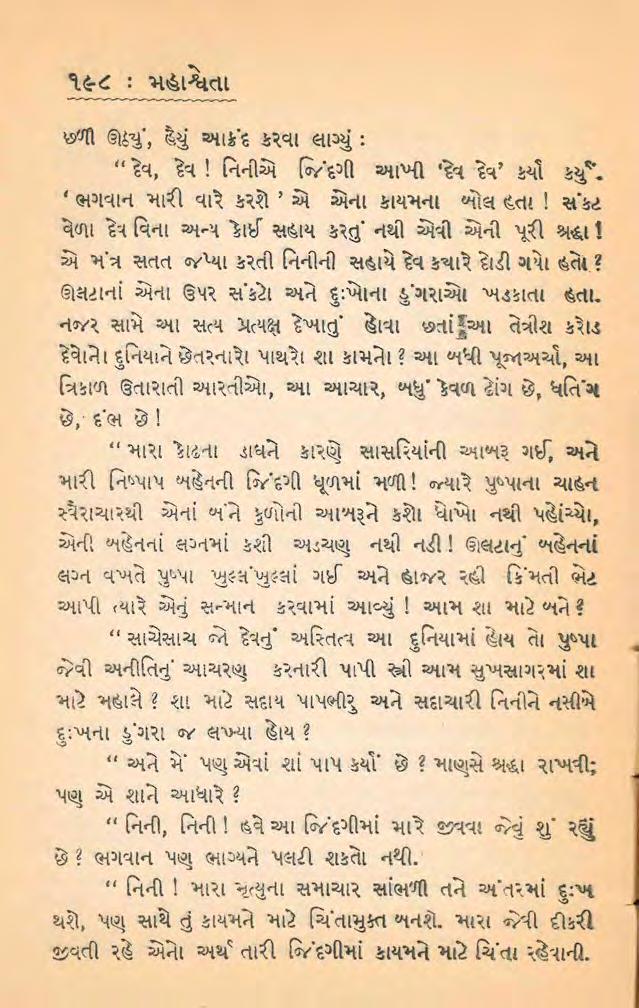 ૧૯૮ : મહાશ્વેતા
છળી ઊઠ્યું, હૈયું આક્રંદ કરવા લાગ્યું :
“ દેવ, દેવ ! નિનીએ જિંદગી આખી ‘દેવ દેવ’ કર્યા કર્યું.
‘ ભગવાન મારી વારે કરશે ’ એ એના કાયમના બોલ હતા ! સંકટ
વેળા દેવ વિના અન્ય કોઈ સહાય કરતું નથી એવી એની પૂરી શ્રદ્ધા !
એ મંત્ર સતત જપ્યા કરતી નિનીની સહાયે દેવ ક્યારે દોડી ગયો હતો ?
ઊલટાનાં એના ઉપર સંકટો અને દુઃખોના ડુંગરાઓ ખડકાતા હતા.
નજર સામે આ સત્ય પ્રત્યક્ષ દેખાતું હોવા છતાં આ તેત્રીશ કરોડ
દેવોનો દુનિયાને છેતરનારો પાથરો શા કામનો ? આ બધી પૂજાઅર્ચા, આ
ત્રિકાળ ઉતારાતી આરતીઓ, આ આચાર, બધું કેવળ ઢોંગ છે, ધતિંગ
છે, દંભ છે !
“ મારા કોઢના ડાઘને કારણે સાસરિયાંની આબરૂ ગઈ, અને
મારી નિષ્પાપ બહેનની જિંદગી ધૂળમાં મળી ! જ્યારે પુષ્પાના ચાહન
સ્વૈરાચારથી એનાં બંને કુળોની આબરૂને કશો ધોખો નથી પહોંચ્યો,
એની બહેનનાં લગ્નમાં કશી અડચણ નથી નડી ! ઊલટાનું બહેનનાં
લગ્ન વખતે પુષ્પા ખુલ્લંખુલ્લાં ગઈ અને હાજર રહી કિંમતી ભેટ
આપી ત્યારે એનું સન્માન કરવામાં આવ્યું ! આમ શા માટે બને ?
“ સાચેસાચ જો દેવનું અસ્તિત્વ આ દુનિયામાં હોય તો પુષ્પા
જેવી અનીતિનું આચરણ કરનારી પાપી સ્ત્રી આમ સુખસાગરમાં શા
માટે મહાલે ? શા માટે સદાય પાપભીરુ અને સદાચારી નિનીને નસીબે
દુઃખના ડુંગરા જ લખ્યા હોય ?
“ અને મેં પણ એવાં શાં પાપ કર્યાં છે ? માણસે શ્રદ્ધા રાખવી;
પણ એ શાને આધારે ?
“ નિની, નિની ! હવે આ જિંદગીમાં મારે જીવવા જેવું શું રહ્યું
છે ? ભગવાન પણ ભાગ્યને પલટી શકતો નથી.
“ નિની ! મારા મૃત્યુના સમાચાર સાંભળી તને અંતરમાં દુઃખ
થશે, પણ સાથે તું કાયમને માટે ચિંતામુક્ત બનશે. મારા જેવી દીકરી
જીવતી રહે એનો અર્થ તારી જિંદગીમાં કાયમને માટે ચિંતા રહેવાની.